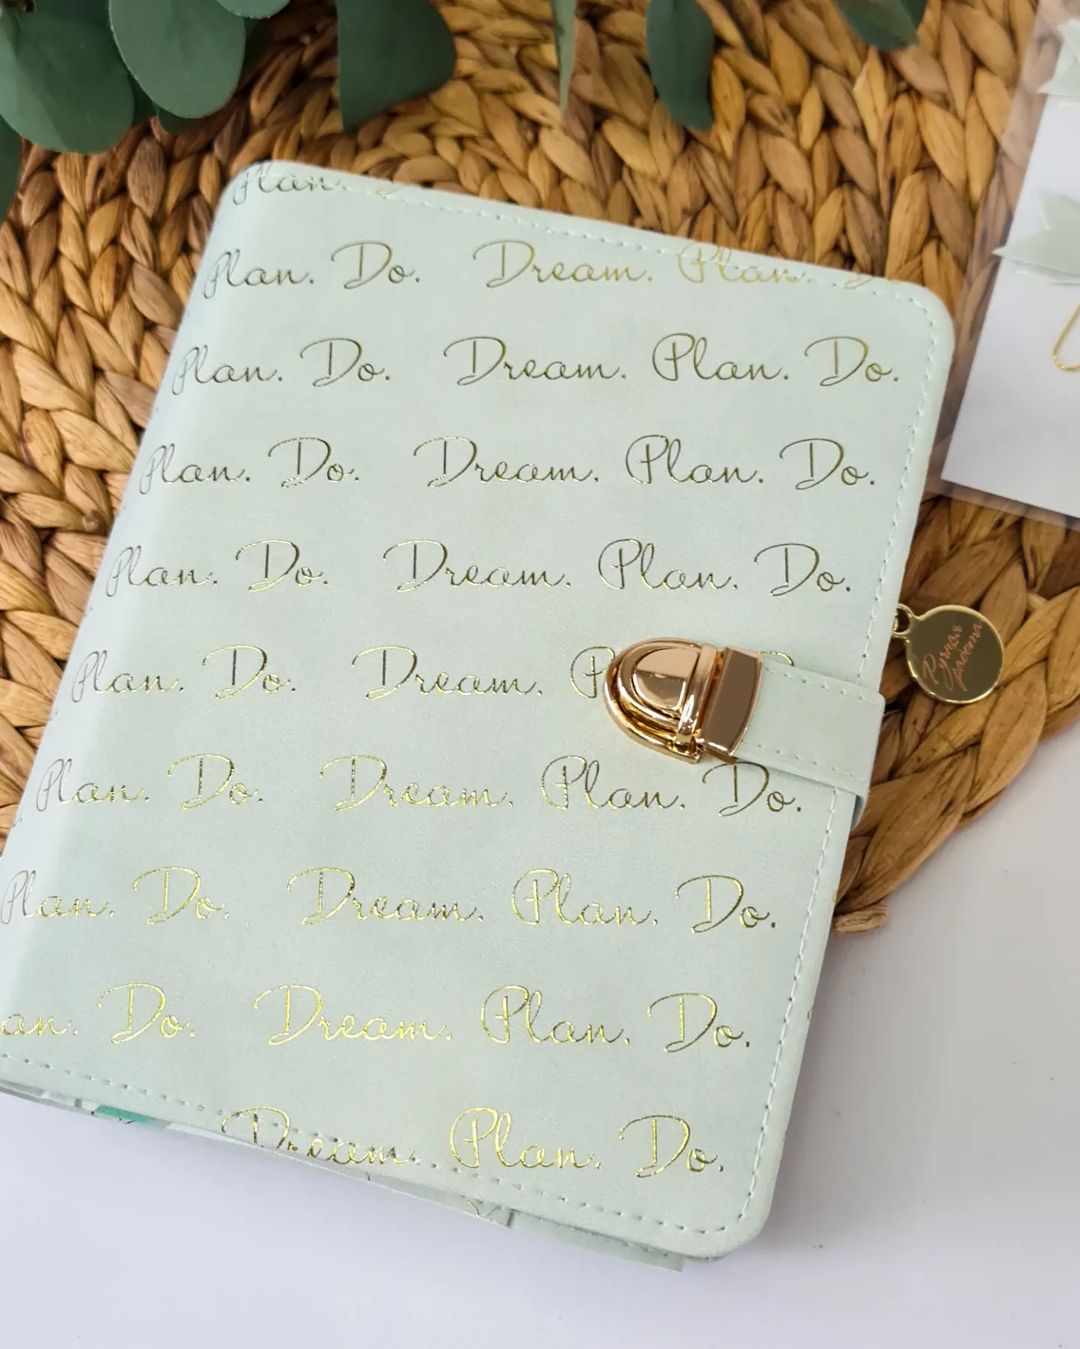 Plan.
Plan. Do. Dream. Plan.
Plan. Do. Dream. Plan. Do.
Plan. Do. Dream. Plan. Do.
Plan. Do. Dream. Plan. Do.
Plan. Do. Dream.
Plan. Do. Dream. Plan. Do.
Plan. Do. Dream. Plan. Do.
an. Do. Dream. Plan. Do.
Dream. Plan. Do.
Ручная работа